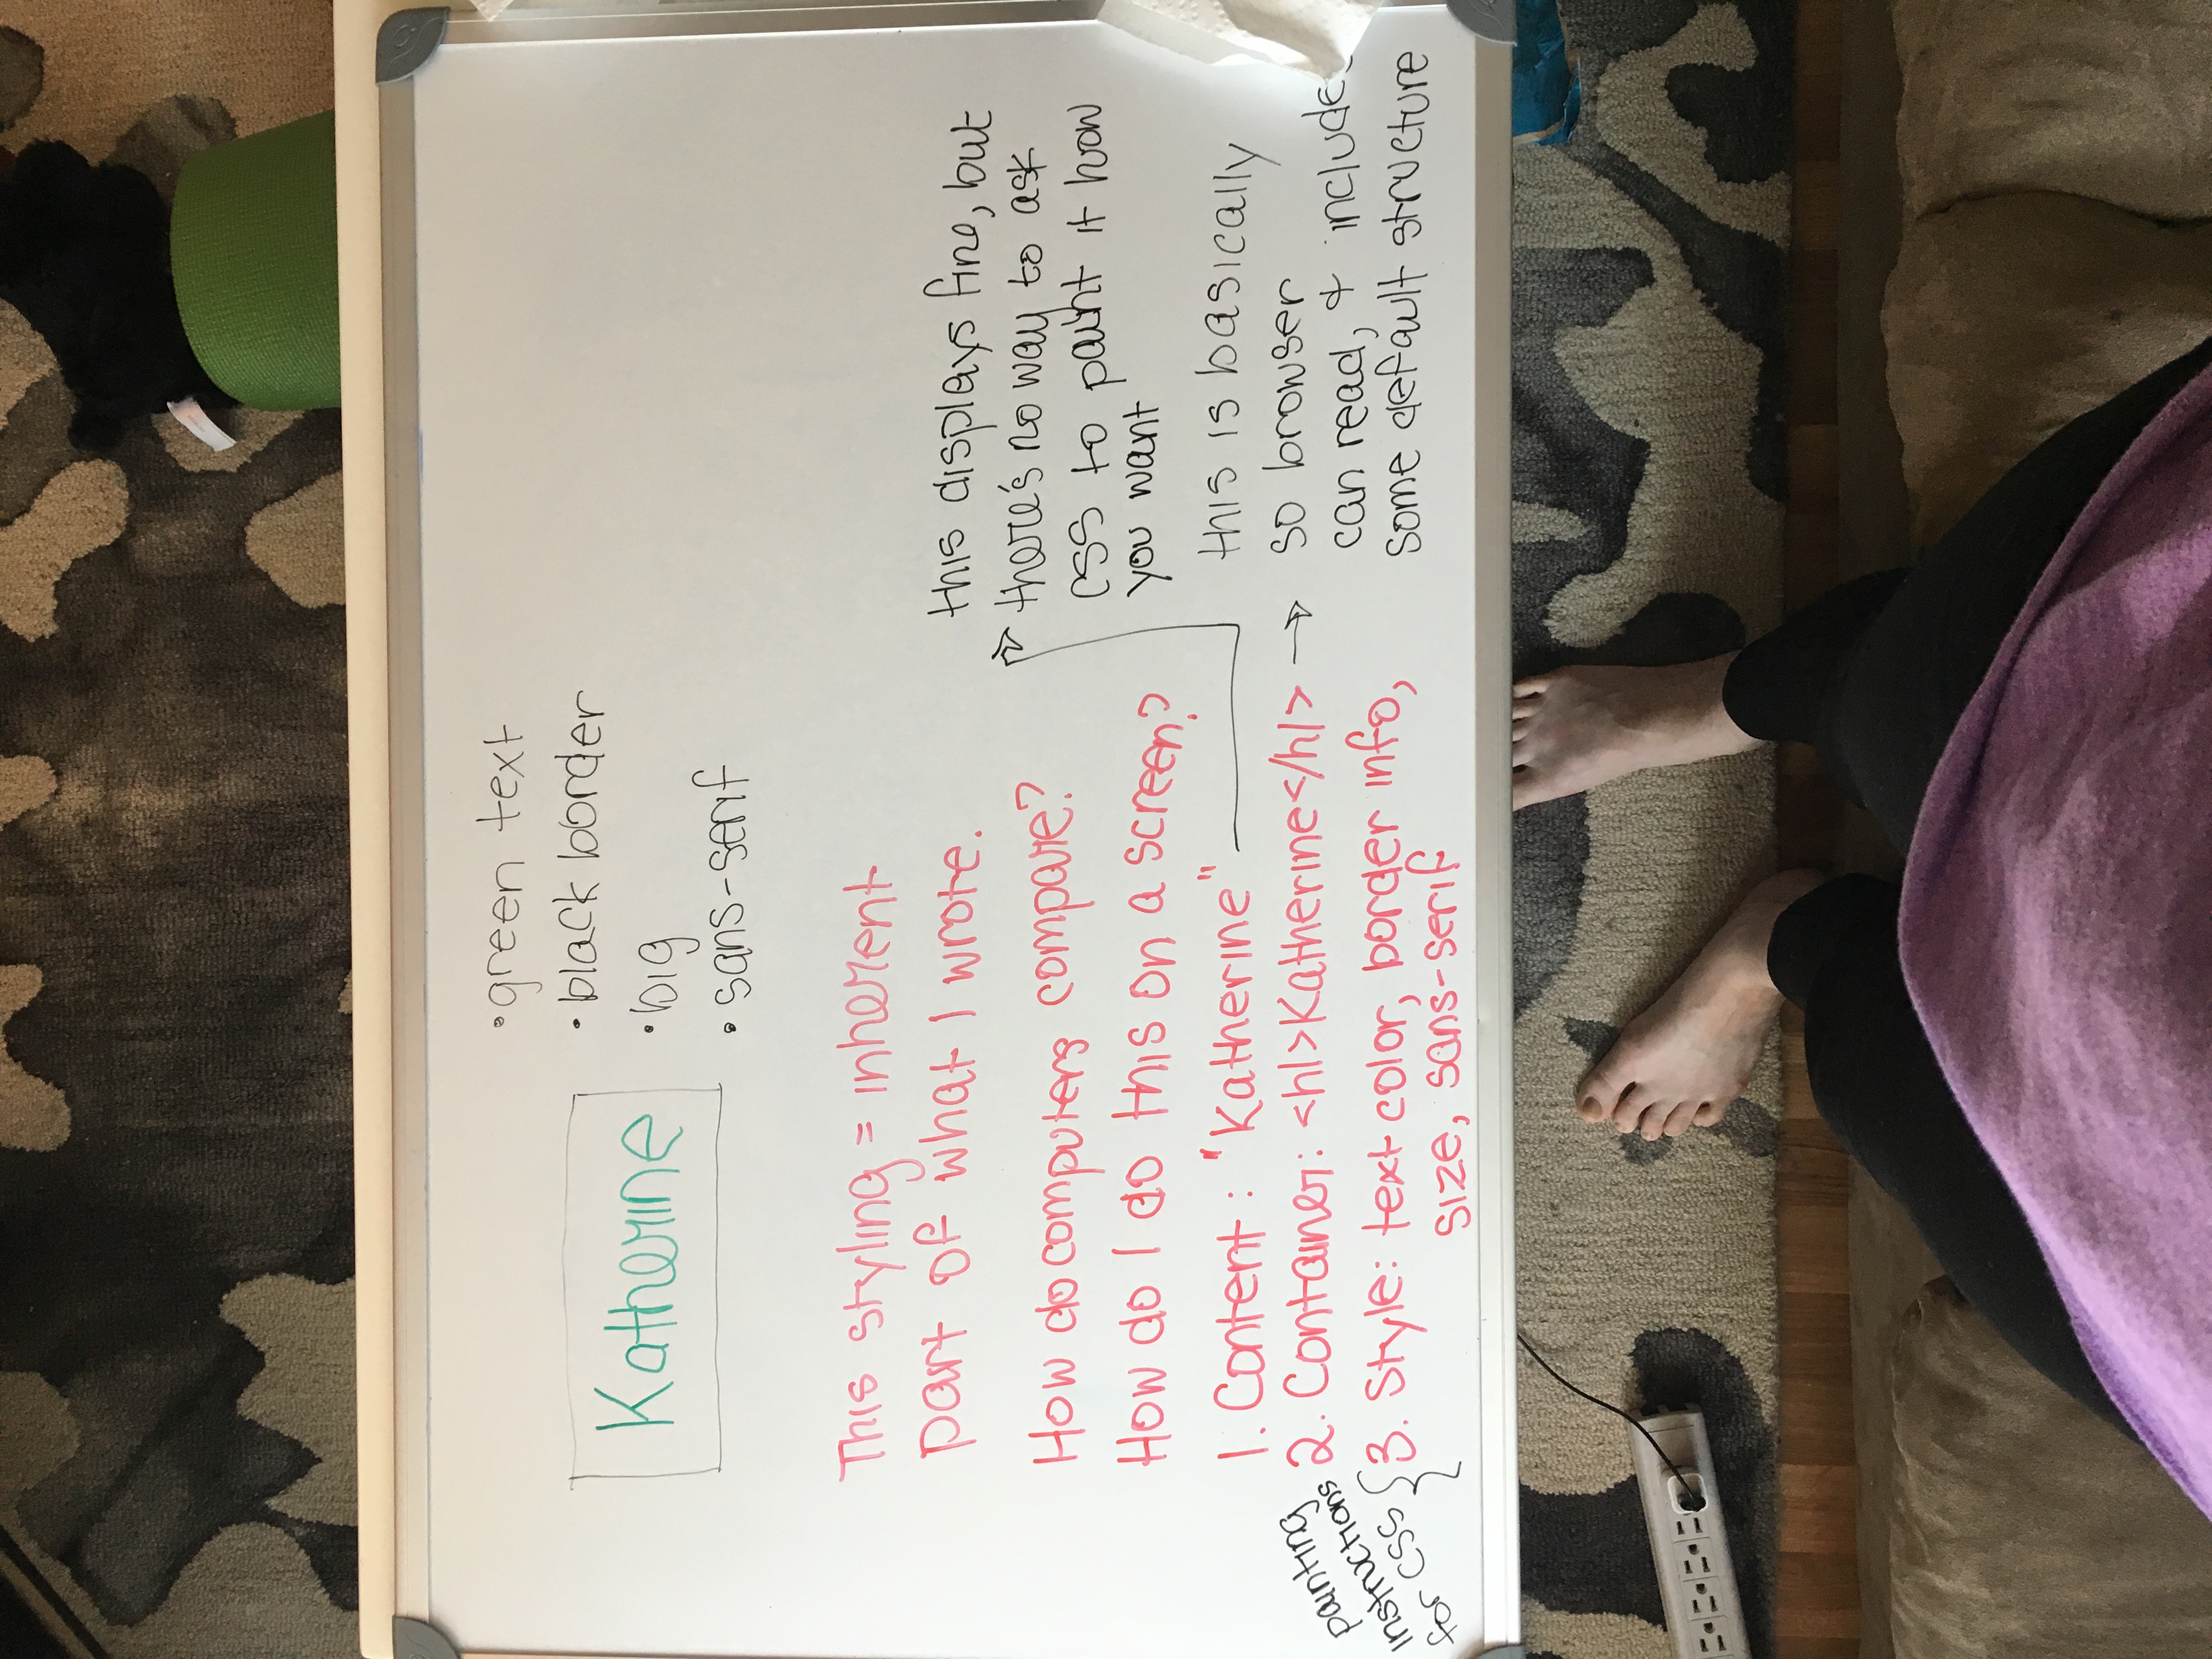 • green text
• black border
• big
• sans-serif
Katherine
This styling = inherent
part of what I wrote.
How do computers compare?
How do I do this on a screen?
1. Content: "Katherine"
2. Container: <h1>Katherine</h1>
3. Style: text color, border info,
size, sans-serif
painting
instructions
for CSS
this displays fine, but
there's no way to ask
CSS to paint it how
you want
this is basically
so browser
can read, & includes
some default structure